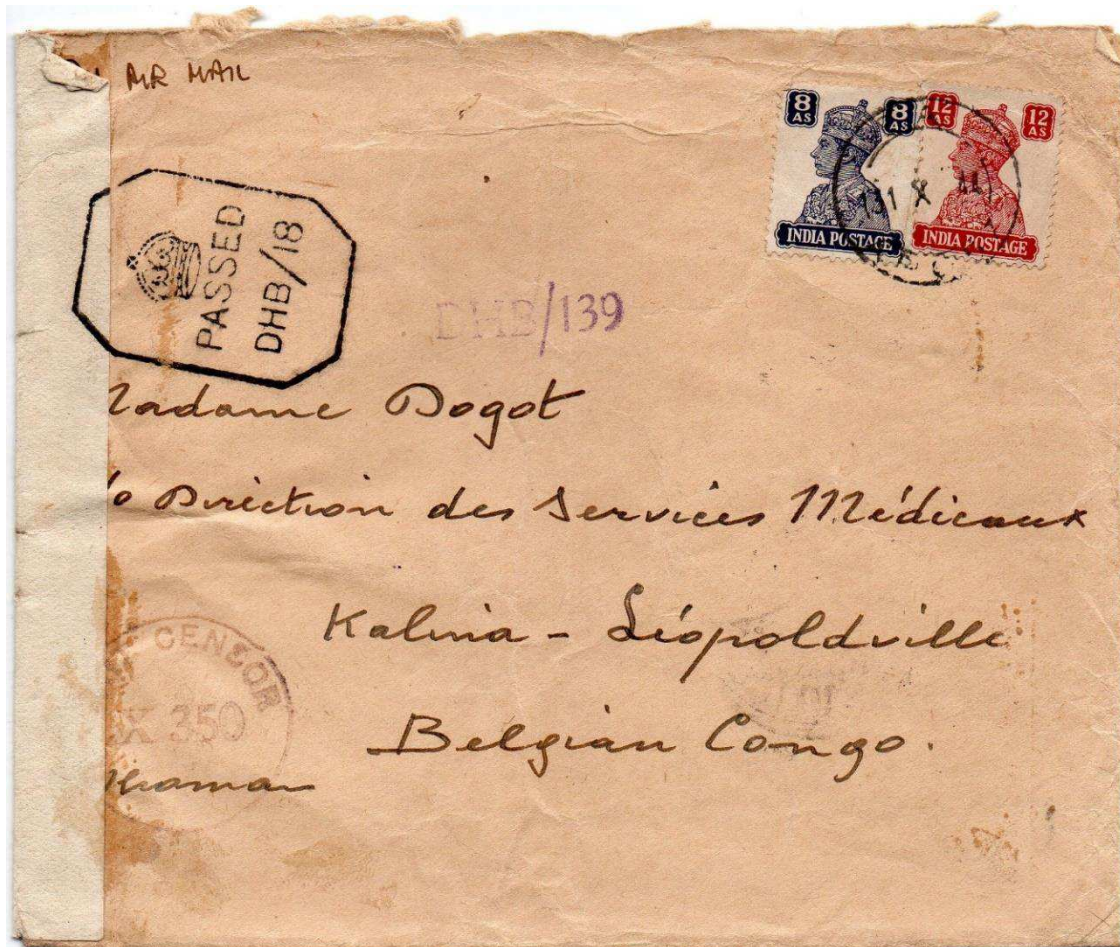 AIR MAIL
8 AS 8 AS 12 AS 12 AS
INDIA POSTAGE INDIA POSTAGE
31 X 44
PASSED
DHB/18
DHB/139
Madame Dogot
c/o Direction des Services Médicaux
Kalina - Léopoldville
Belgian Congo.
CENSOR
X 350